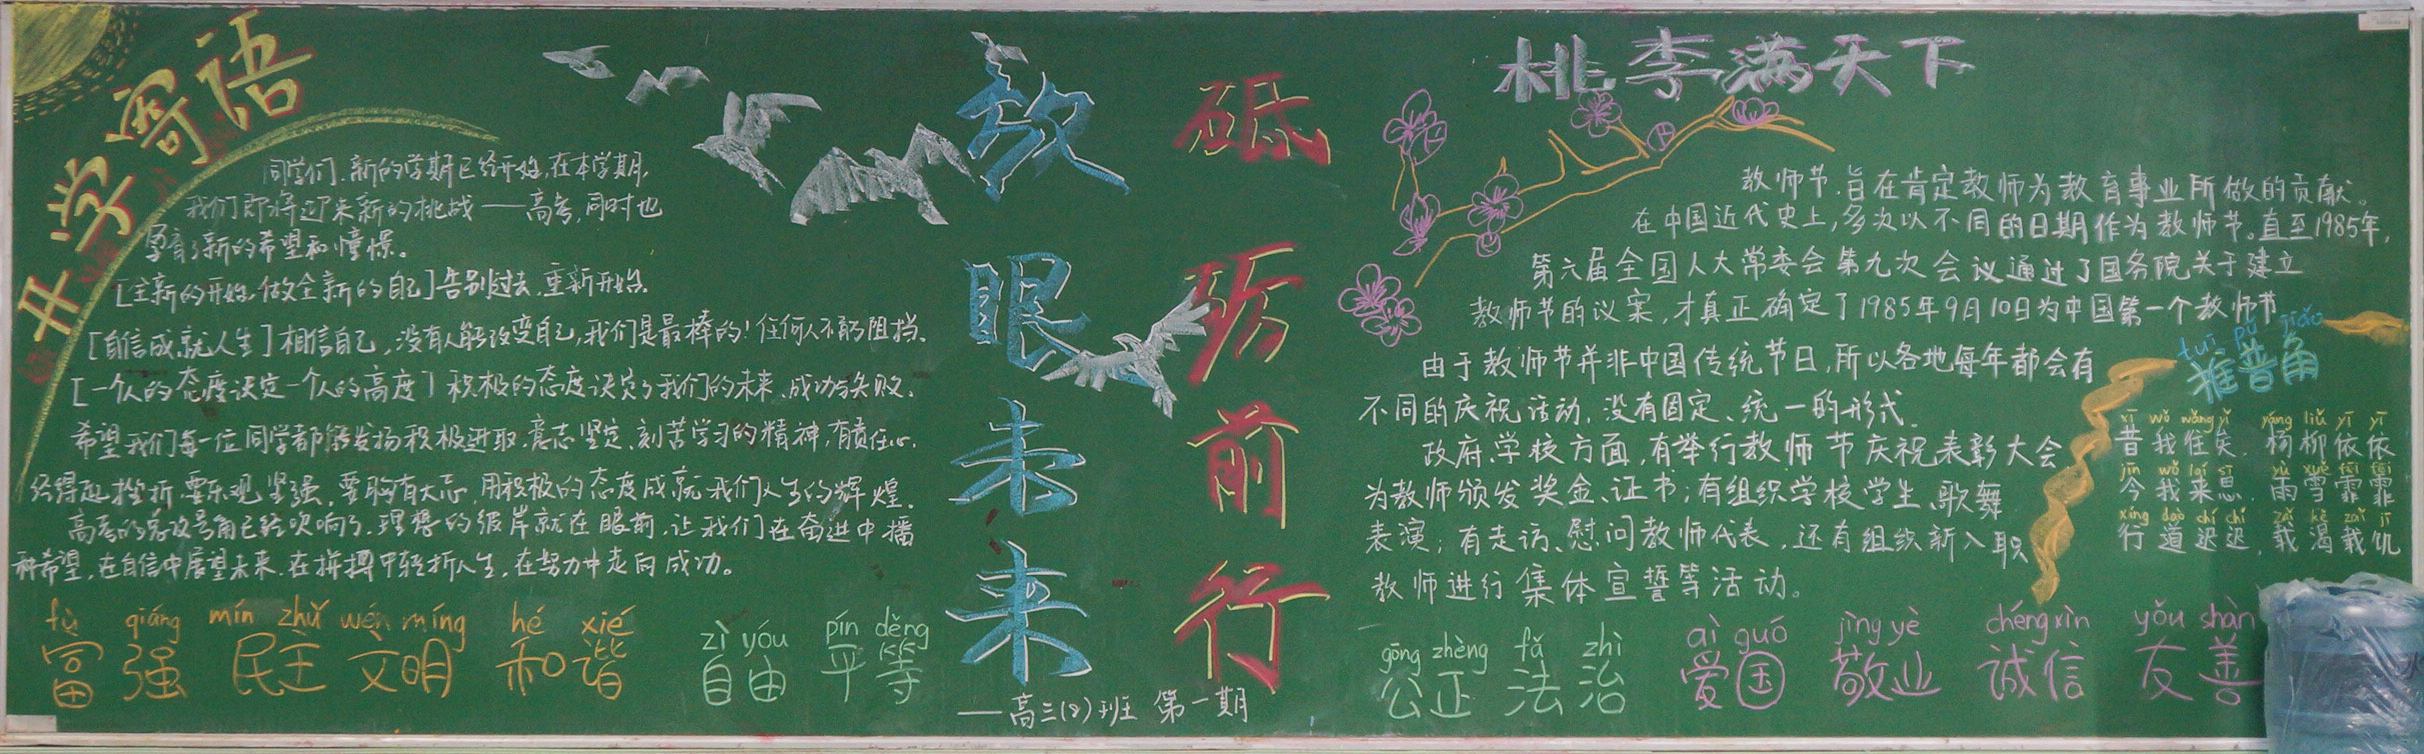 开学寄语
同学们，新的学期已经开始，在本学期，
我们即将迎来新的挑战——高考，同时也
孕育了新的希望和憧憬。
[全新的开始，做全新的自己]告别过去，重新开始。
[自信成就人生]相信自己，没有人能改变自己，我们是最棒的！任何人不能阻挡。
[一个人的态度决定一个人的高度]积极的态度决定了我们的未来、成功与失败。
希望我们每一位同学都能发扬积极进取、意志坚定、刻苦学习的精神，有责任心，
经得起挫折，要乐观坚强，要胸有大志，用积极的态度成就我们人生的辉煌。
高考的号角已经吹响了，理想的彼岸就在眼前，让我们在奋进中播
种希望，在自信中展望未来，在拼搏中转折人生，在努力中走向成功。
fù qiáng mín zhǔ wén míng hé xié
富强 民主 文明 和谐
zì yóu pín děng
自由 平等
放眼未来
砥砺前行
——高三(8)班 第一期
桃李满天下
教师节，旨在肯定教师为教育事业所做的贡献。
在中国近代史上，多次以不同的日期作为教师节。直至1985年，
第六届全国人大常委会第九次会议通过了国务院关于建立
教师节的议案，才真正确定了1985年9月10日为中国第一个教师节
由于教师节并非中国传统节日，所以各地每年都会有
不同的庆祝活动，没有固定、统一的形式。
政府、学校方面，有举行教师节庆祝表彰大会
为教师颁发奖金、证书；有组织学校学生、歌舞
表演；有走访、慰问教师代表，还有组织新入职
教师进行集体宣誓等活动。
tuī pǔ jiǎo
推普角
xī wǒ wǎng yǐ yáng liǔ yī yī
昔我往矣，杨柳依依
jīn wǒ lái sī yù xuě fēi fēi
今我来思，雨雪霏霏
xíng dào chí chí zǎi kě zǎi jī
行道迟迟，载渴载饥
gōng zhèng fǎ zhì
公正 法治
ài guó jìng yè chéng xìn yǒu shàn
爱国 敬业 诚信 友善